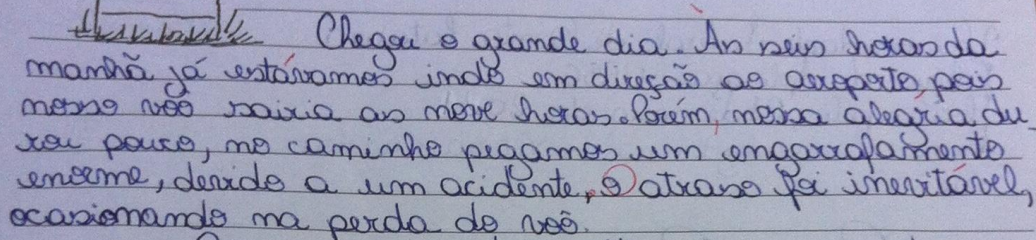 Chegou o grande dia. Às seis horas da
manhã já estávamos indo em direção ao aeroporto, pois
nosso vôo sairia as nove horas. Porém, nossa alegria du
rou pouco, no caminho pegamos um engarrafamento
enorme, devido a um acidente, o atraso foi inevitável,
ocasionando na perda do voô.